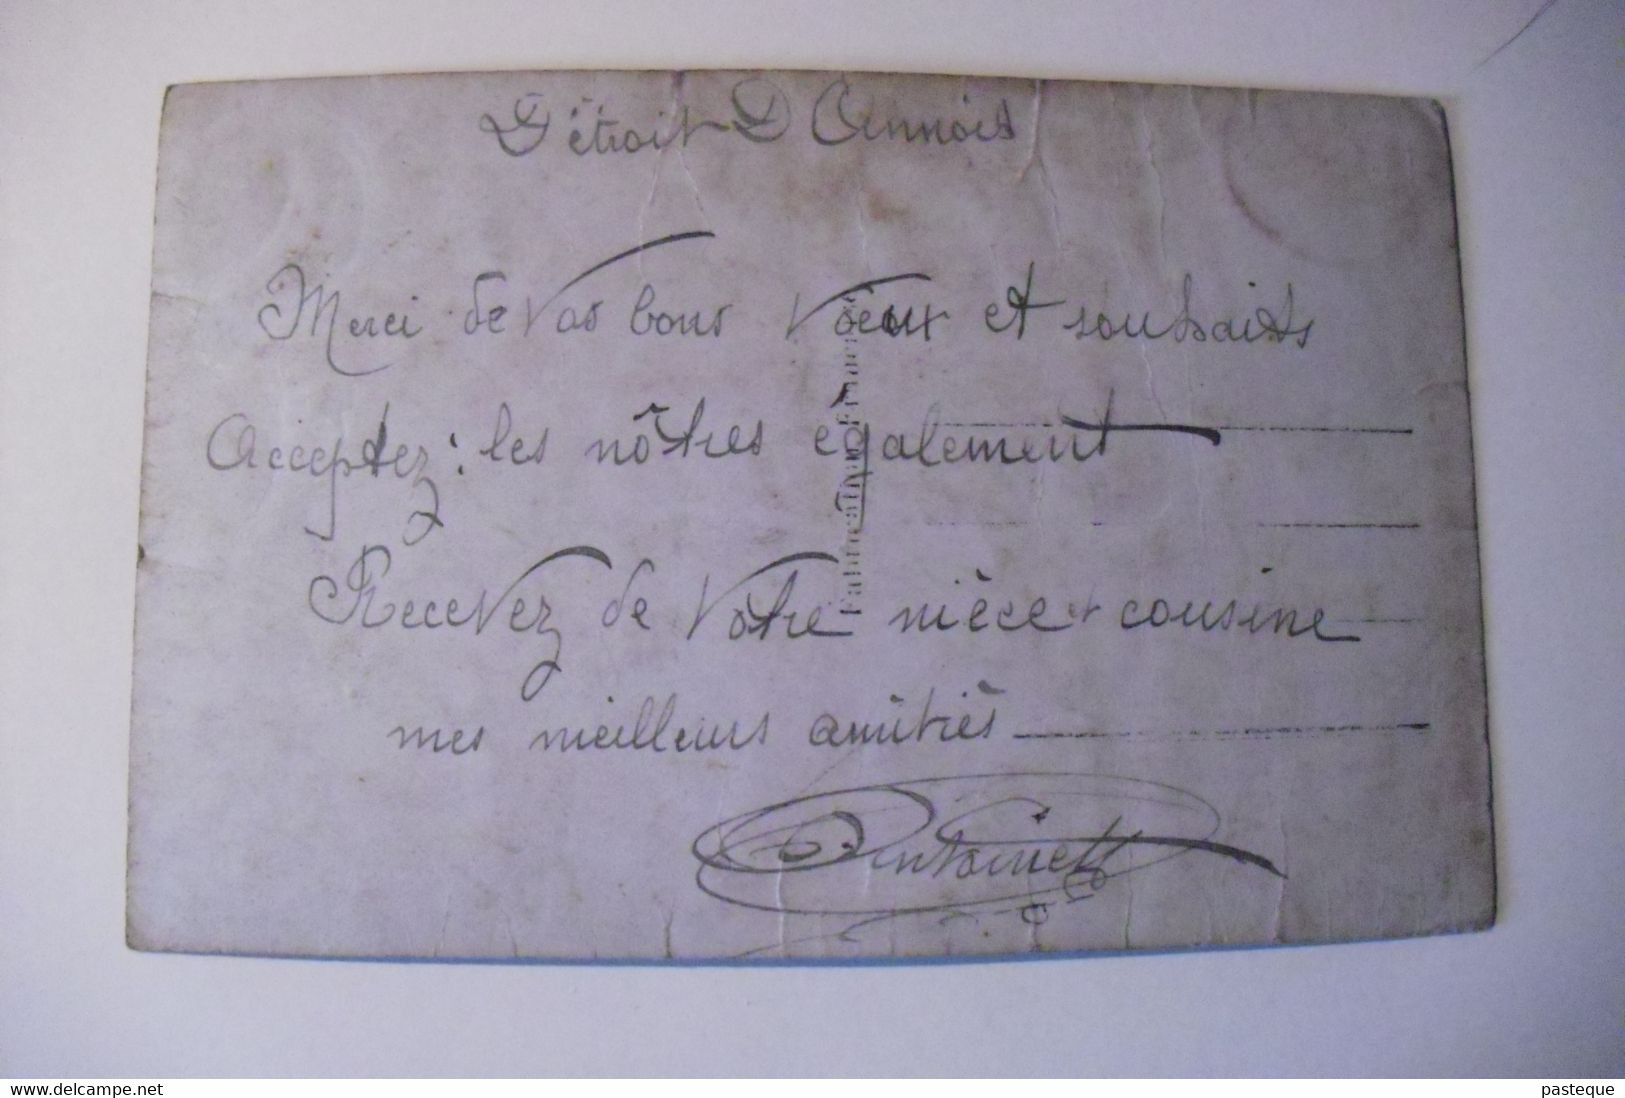 Détroit D Annois
Merci de Vos bons Voeux et souhaits
Acceptez : les nôtres également
Recevez de Votre nièce et cousine
mes meilleurs amitiés
Antoinette
Fabrication Française
www.delcampe.net
pasteque